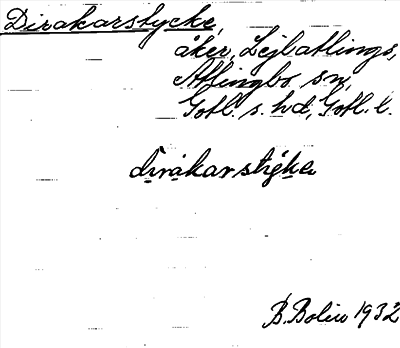 Dirakarstycke,
åker, Lejlatlings,
Atlingbo sn,
Gotl. s. hd, Gotl. l.
dirakar styke
B. Bolin 1932